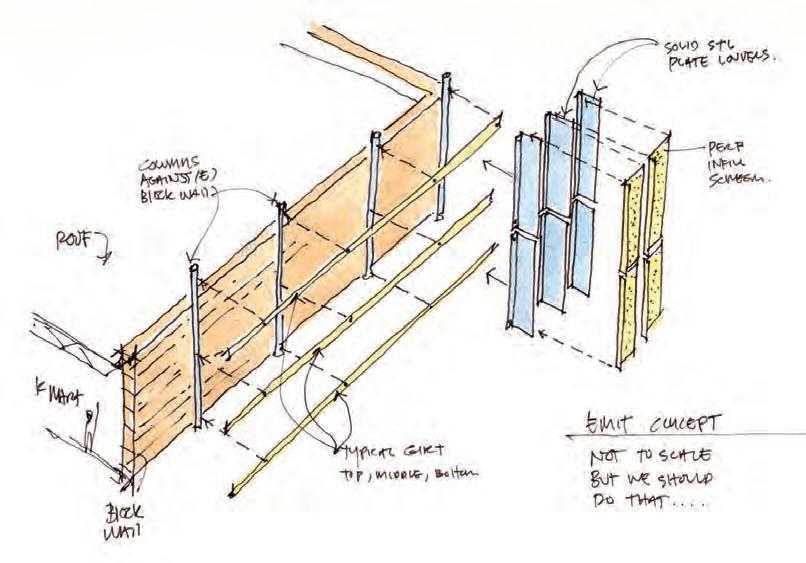 SOLID STL
PLATE LOUVERS.
PERF
INFILL
SCREEN.
COLUMNS
AGAINST (E)
BLOCK WALL
ROOF
K MART
BLOCK
WALL
TYPICAL GIRT
TOP, MIDDLE, BOTTOM
CONCEPT
NOT TO SCALE
BUT WE SHOULD
DO THAT....